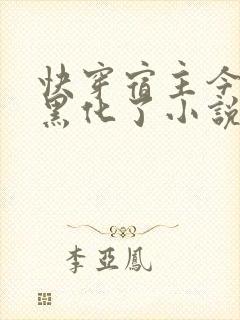 快穿宿主今
黑化了小說
李亞鳳